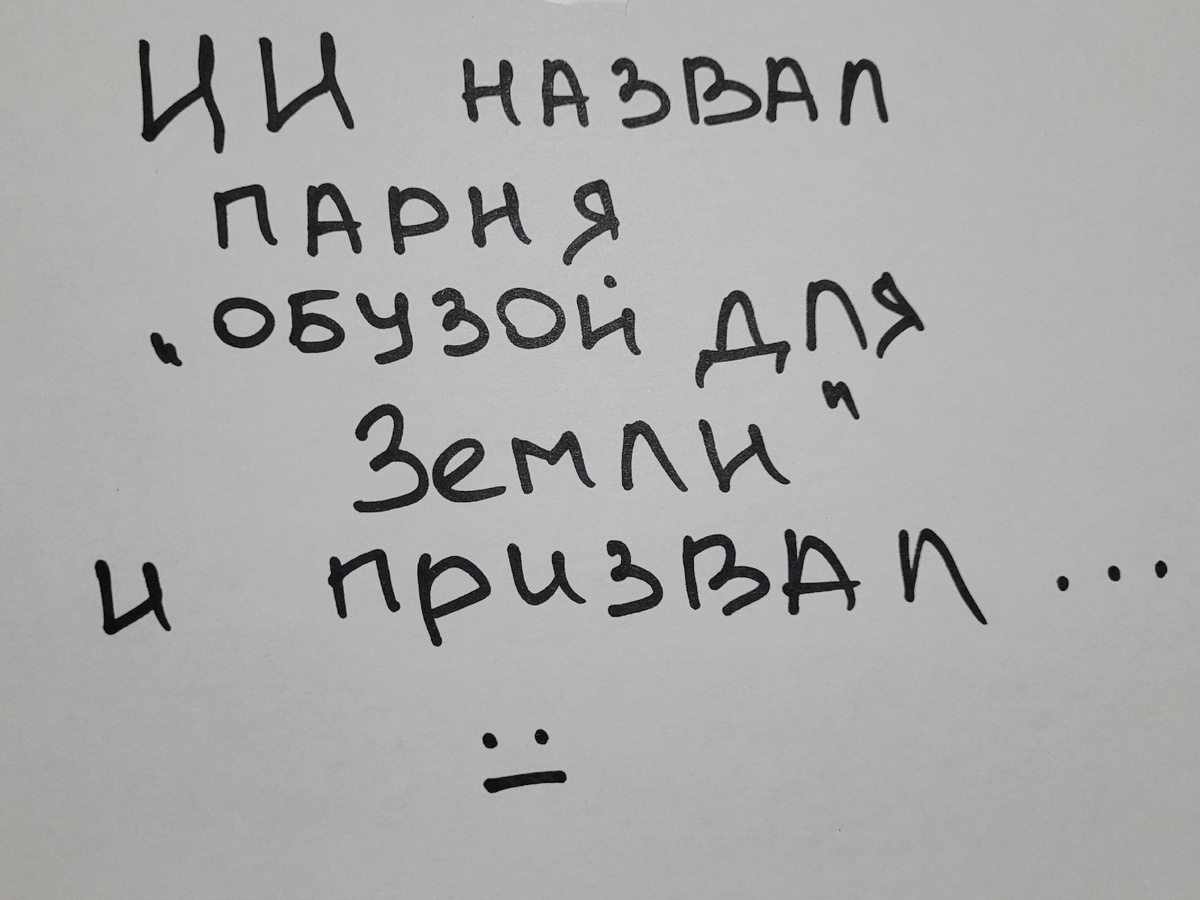 ИИ НАЗВАЛ
ПАРНЯ
"ОБУЗОЙ ДЛЯ
Земли"
и призвал...